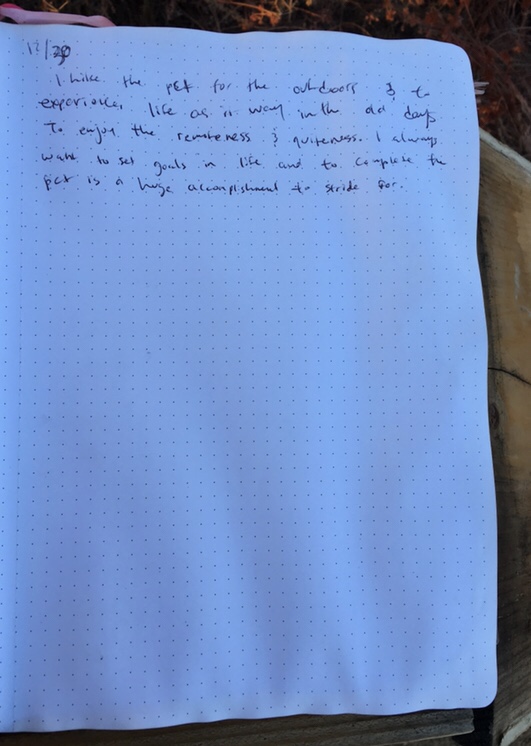 12/30
I hike the pct for the outdoors & to
experience, life as is way in the old days
To enjoy the remoteness & quiteness. I always
want to set goals in life and to complete the
pct is a huge accomplishment to stride for.